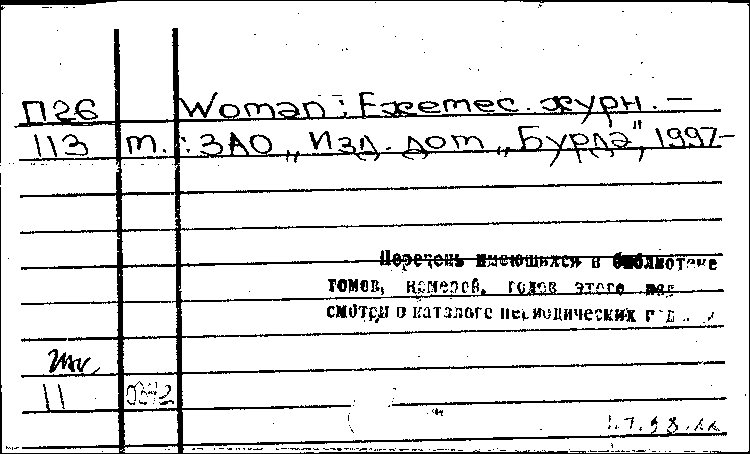 П26 Woman : Ежемес. журн. —
113 m. : ЗАО „Изд. дом „Бурда", 1997–
Перечень имеющихся в библиотеке
томов, номеров, годов этого
смотри в каталоге периодических
11